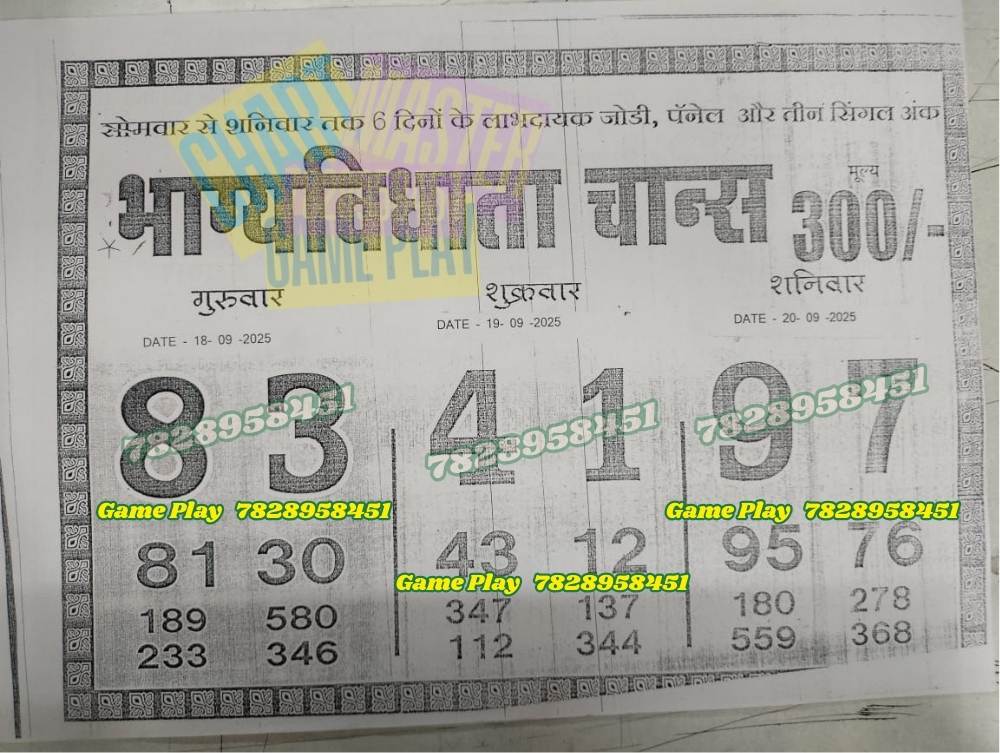 सोमवार से शनिवार तक 6 दिनों के लाभदायक जोडी, पॅनेल और तीन सिंगल अंक
CHART MASTER
GAME PLAY
भाग्यविधाता चान्स
मूल्य
300/-
गुरुवार शुक्रवार शनिवार
DATE - 18- 09 -2025 DATE - 19- 09 -2025 DATE - 20- 09 -2025
8 3 4 1 9 7
7828958451 7828958451 7828958451
Game Play 7828958451 Game Play 7828958451
81 30 43 12 95 76
Game Play 7828958451
189 580 347 137 180 278
233 346 112 344 559 368